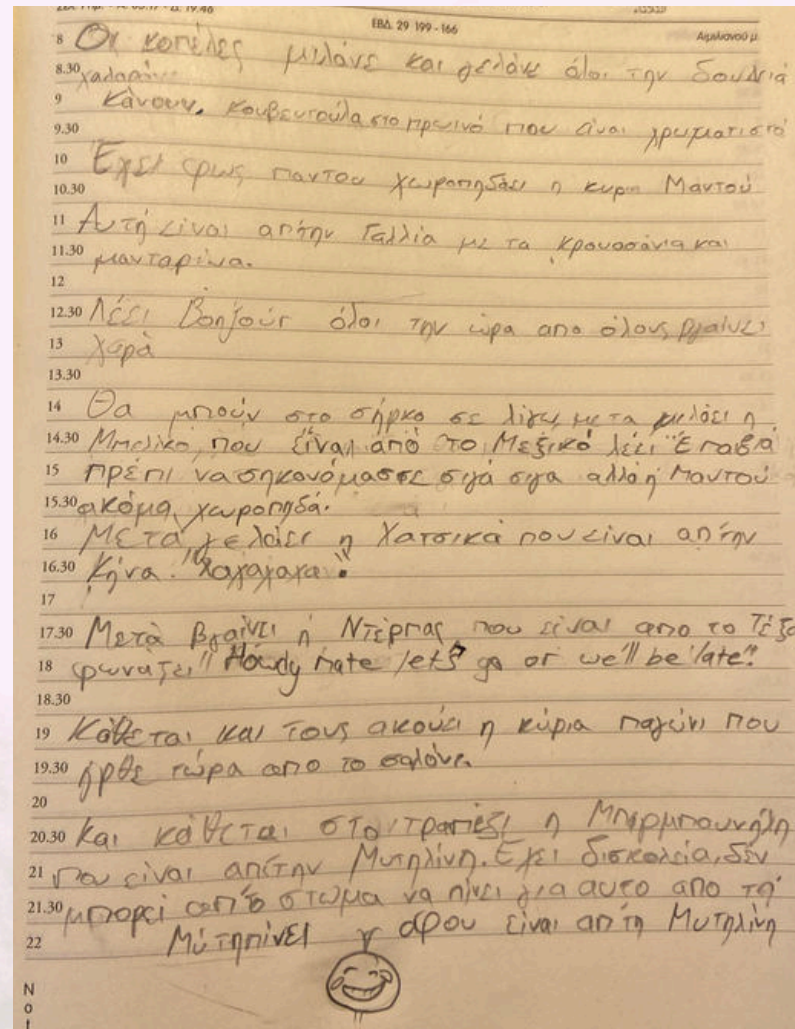 ΕΒΔ. 29 199-166
Αιμιλιανού μ.
8 Οι κοπέλες μιλάνε και γελάνε όλοι την δουλειά
8.30 χαλαρά
9 κάνουν. κουβεντούλα στο πρωινό που είναι χρωματιστό
9.30
10 Έχει φως παντου χωροπηδάει η κυρη Μαντού
10.30
11 Αυτή είναι απ'την Γαλλία με τα κρουασάνια και
11.30 μανταρίνια.
12
12.30 Λέει Bonjour όλοι την ώρα απο όλους βγαίνει
13 χαρά
13.30
14 Θα μπούν στο σήρκο σε λίγω, μετα μιλάει η
14.30 που είναι από το Μεξικό λέει
15 πρέπι να σηκονόμασσε σιγά σιγα αλλά ή Μαντού
15.30 ακόμα χωροπηδά.
16 Μετά γελάει η Χατσικά που είναι απ'την
16.30 Κήνα. "Χαχαχαχα".
17
17.30 Μετά βγαίνει ή Ντέρπας, που είναι απο το Τέξα
18 φωναζει "Howdy mate let's go or we'll be late".
18.30
19 Κάθεται και τους ακούει η κύρια παγώνι που
19.30 ήρθε τώρα απο το σαλόνι.
20
20.30 Και κάθεται στο τραπέζι η Μπαρμπουνήλη
21 που είναι απ'την Μυτηλίνη. Έχει δισκολεία, δέν
21.30 μπορεί απ'το στωμα να πίνει για αυτο απο τη
22 Μύτηπίνει γ αφου είναι απ'τη Μυτηλίνη
N
o
t